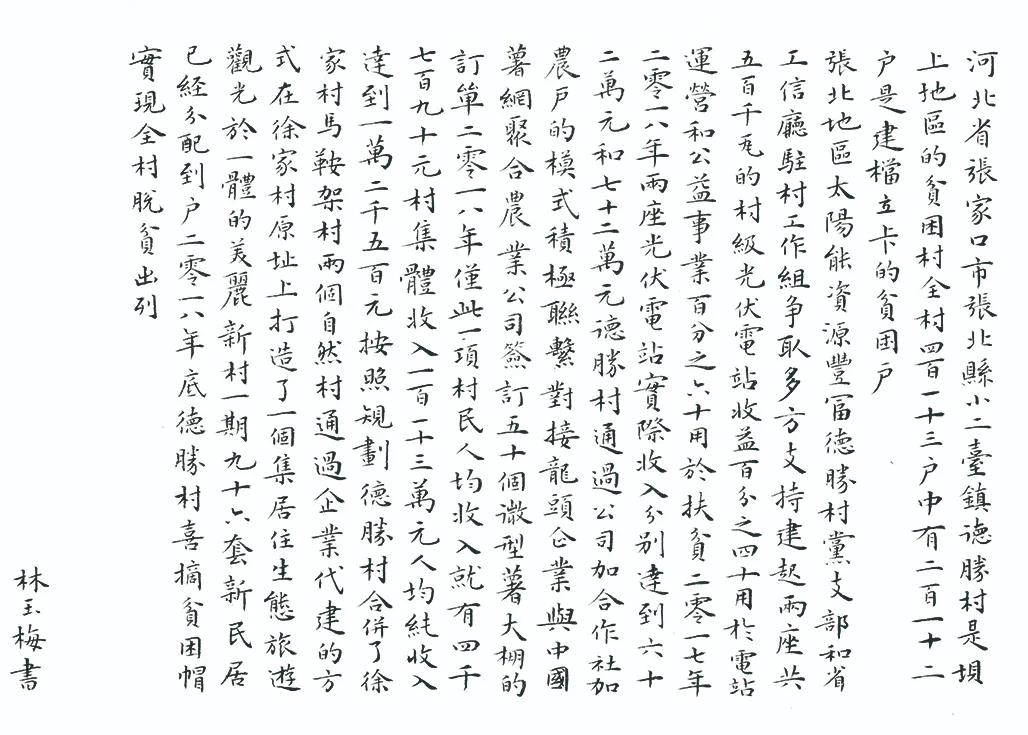 河北省張家口市張北縣小二臺鎮德勝村是壩
上地區的貧困村全村四百一十三户中有二百一十二
户是建檔立卡的貧困户
張北地區太陽能資源豐富德勝村黨支部和省
工信廳駐村工作組争取多方支持建起兩座共
五百千瓦的村級光伏電站收益百分之四十用於電站
運營和公益事業百分之六十用於扶貧二零一七年
二零一八年兩座光伏電站實際收入分别達到六十
二萬元和七十二萬元德勝村通過公司加合作社加
農户的模式積極聯繫對接龍頭企業與中國
薯網聚合農業公司簽訂五十個微型薯大棚的
訂單二零一八年僅此一項村民人均收入就有四千
七百九十元村集體收入一百一十三萬元人均純收入
達到一萬二千五百元按照規劃德勝村合併了徐
家村馬鞍架村兩個自然村通過企業代建的方
式在徐家村原址上打造了一個集居住生態旅遊
觀光於一體的美麗新村一期九十六套新民居
已經分配到户二零一八年底德勝村喜摘貧困帽
實現全村脱貧出列
林玉梅書